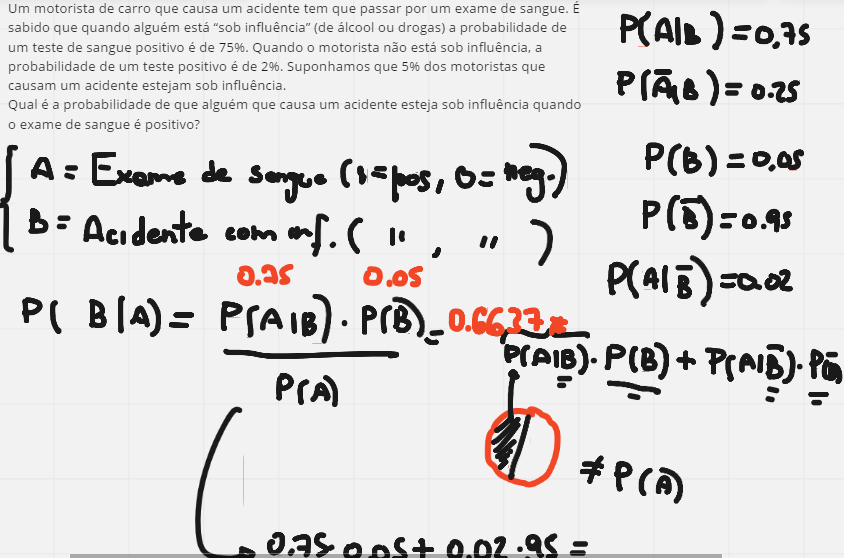 Um motorista de carro que causa um acidente tem que passar por um exame de sangue. É
sabido que quando alguém está “sob influência” (de álcool ou drogas) a probabilidade de
um teste de sangue positivo é de 75%. Quando o motorista não está sob influência, a
probabilidade de um teste positivo é de 2%. Suponhamos que 5% dos motoristas que
causam um acidente estejam sob influência.
Qual é a probabilidade de que alguém que causa um acidente esteja sob influência quando
o exame de sangue é positivo?
P(A|B)=0,75
P(A̅|B)=0.25
P(B)=0,05
P(B̅)=0.95
P(A|B̅)=0.02
A = Exame de sangue (1=pos, 0=neg.)
B = Acidente com inf. ( " , " )
0.75 0.05
P(B|A) = P(A|B) . P(B) = 0.6637
P(A)
P(A|B) . P(B) + P(A|B̅) . P(B̅)
≠ P(A̅)
0.75 0.05 + 0.02 .95 =